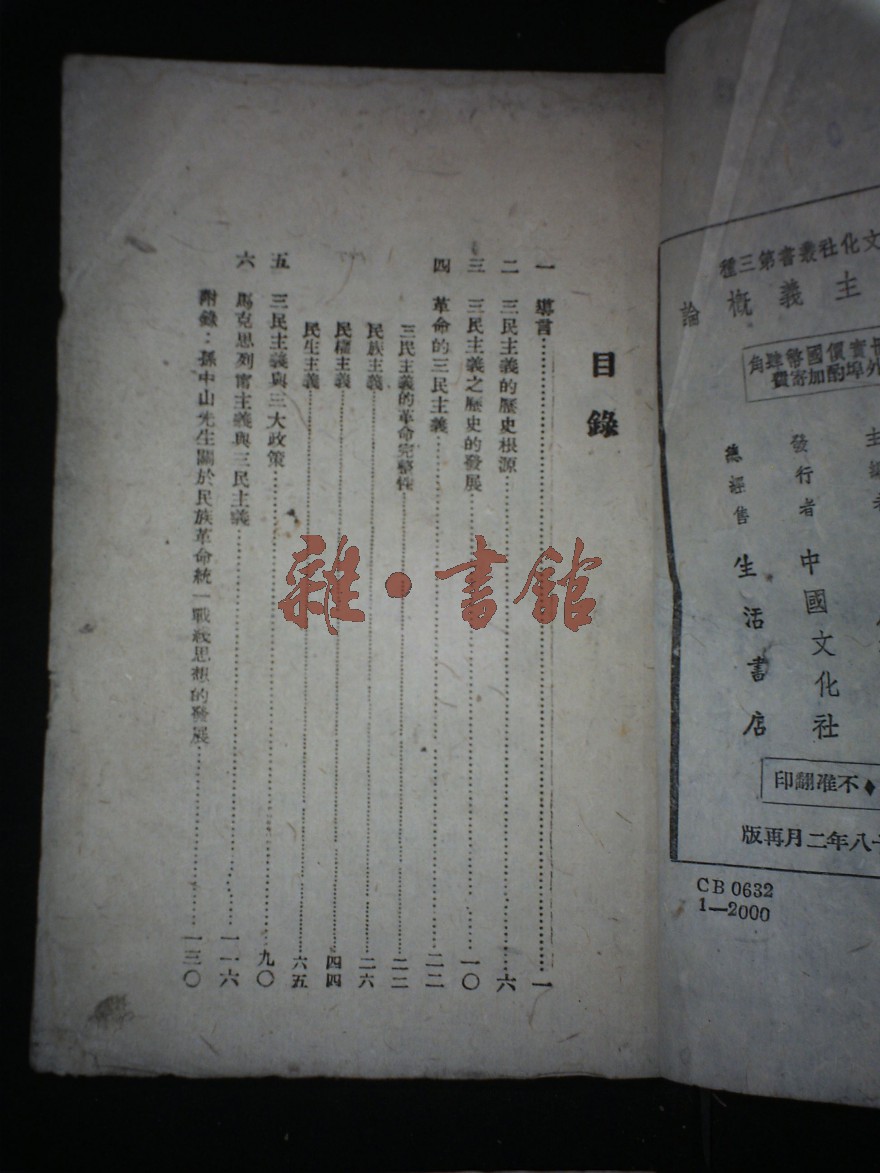 目錄
一 導言……一
二 三民主義的歷史根源……六
三 三民主義之歷史的發展……一〇
四 革命的三民主義……二二
三民主義的革命完整性……二二
民族主義……二六
民權主義……四四
民生主義……六五
五 三民主義與三大政策……九〇
六 馬克思列甯主義與三民主義……一一六
附錄：孫中山先生關於民族革命統一戰線思想的發展……一三〇
雜·書館
文化社叢書第三種
主義概論
實價國幣肆角
外埠酌加寄費
主編者
發行者 中國文化社
總經售 生活書店
不准翻印
八年二月再版
CB 0632
1—2000